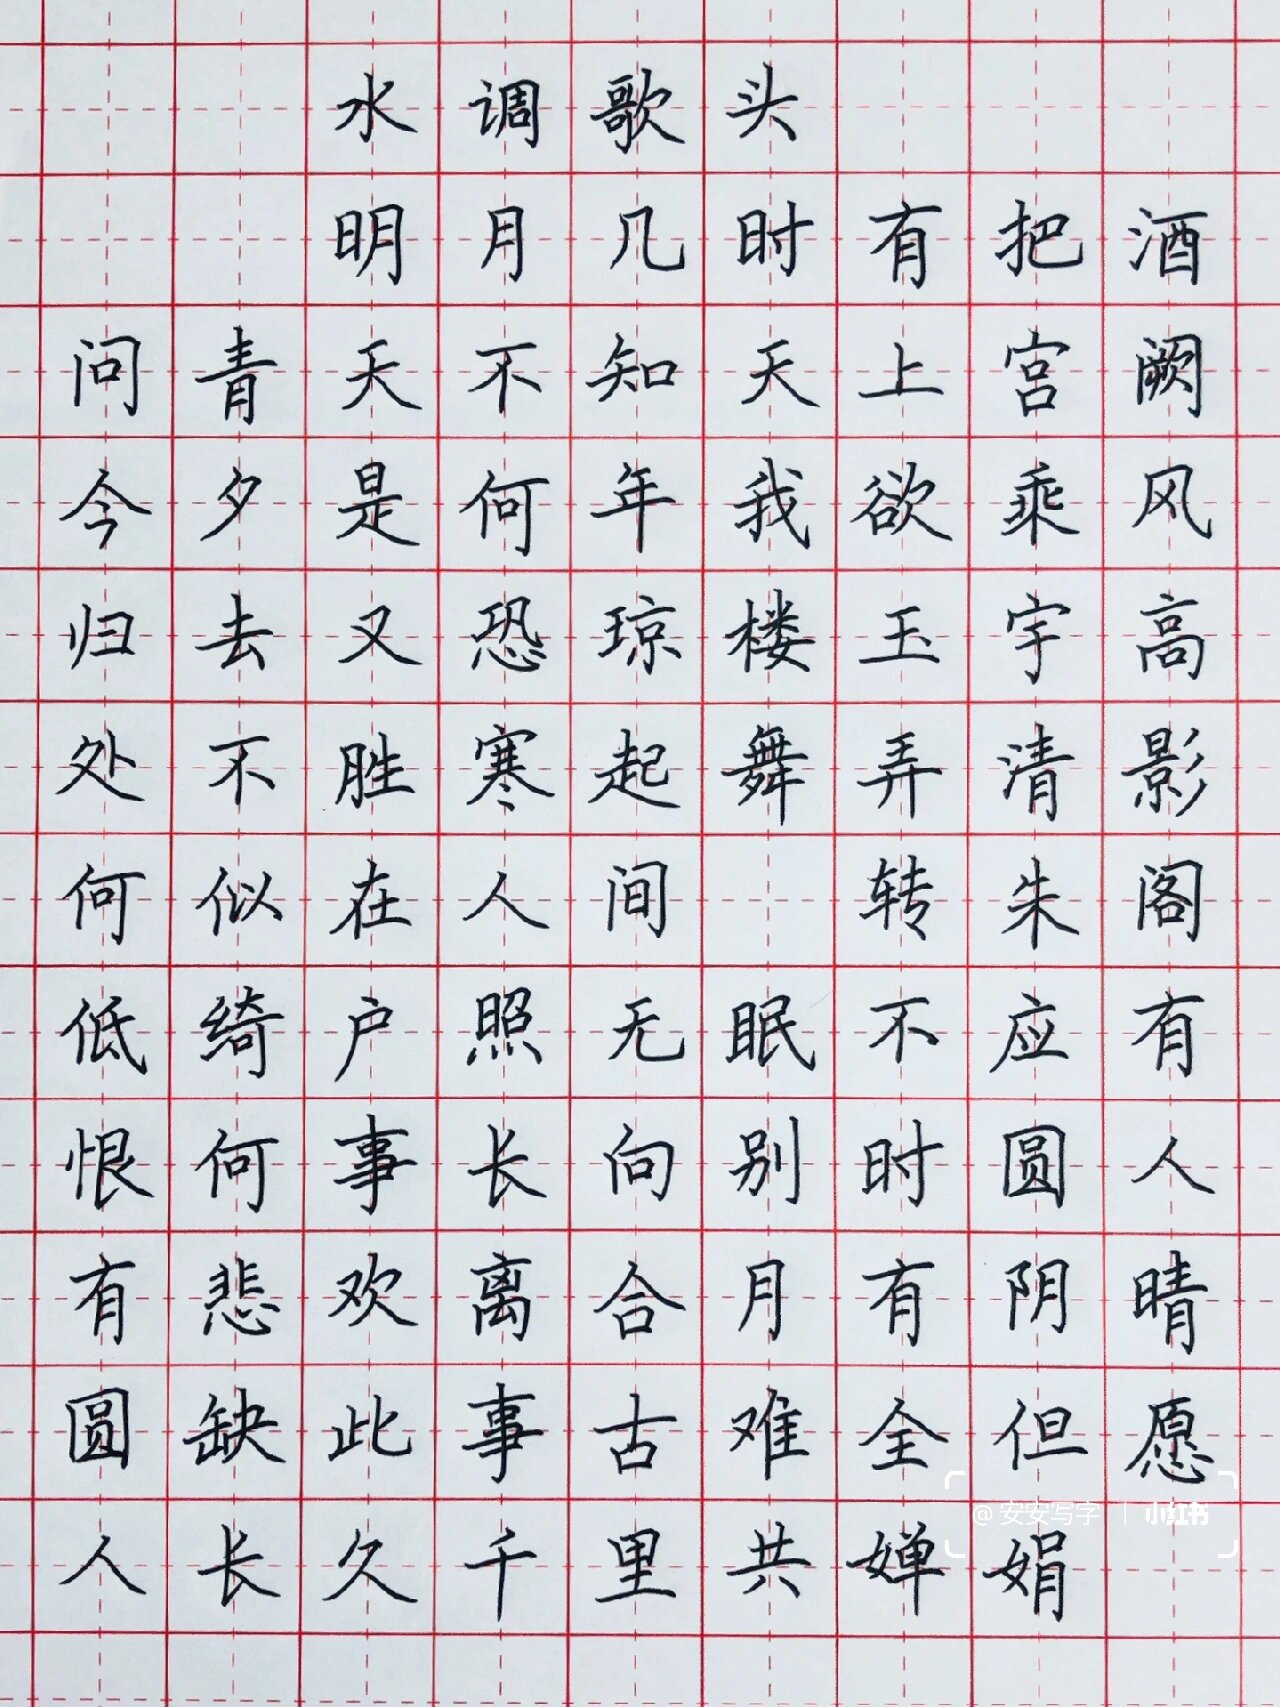 水调歌头
明月几时有把酒
问青天不知天上宫阙
今夕是何年我欲乘风
归去又恐琼楼玉宇高
处不胜寒起舞弄清影
何似在人间 转朱阁
低绮户照无眠不应有
恨何事长向别时圆人
有悲欢离合月有阴晴
圆缺此事古难全但愿
人长久千里共婵娟
@安安写字 | 小红书